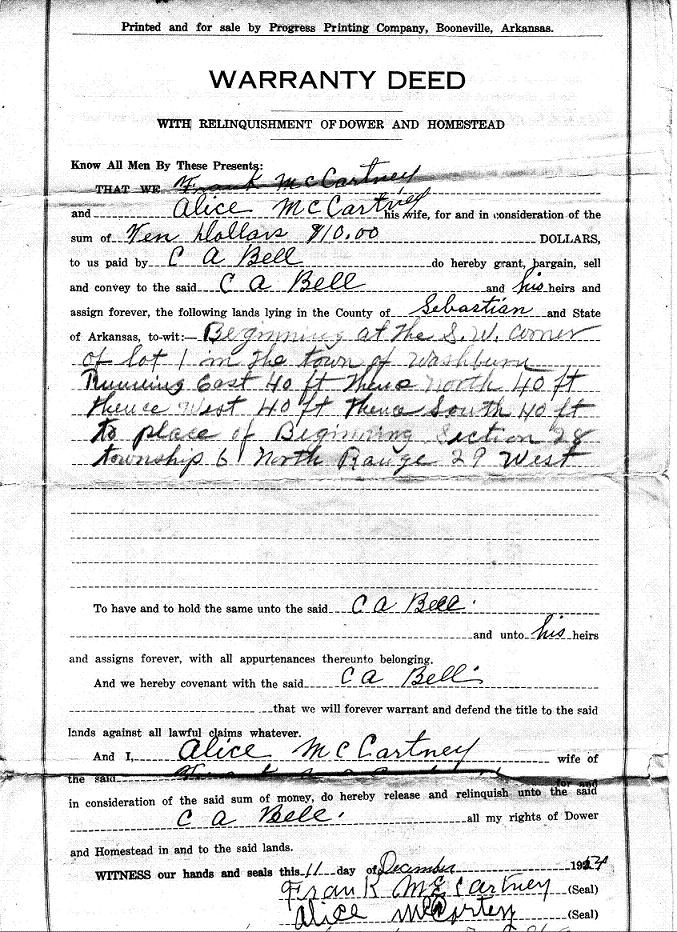 Printed and for sale by Progress Printing Company, Booneville, Arkansas.
WARRANTY DEED
WITH RELINQUISHMENT OF DOWER AND HOMESTEAD
Know All Men By These Presents:
THAT WE Frank McCartney
and Alice McCartney his wife, for and in consideration of the
sum of Ten Dollars $10.00 DOLLARS,
to us paid by C A Bell do hereby grant, bargain, sell
and convey to the said C A Bell and his heirs and
assign forever, the following lands lying in the County of Sebastian and State
of Arkansas, to-wit:— Beginning at the S.W. Corner
of lot 1 in the town of Washburn
Running East 40 ft thence North 40 ft
thence West 40 ft thence South 40 ft
to place of Beginning Section 28
township 6 North Range 29 West
To have and to hold the same unto the said C A Bell.
and unto his heirs
and assigns forever, with all appurtenances thereunto belonging.
And we hereby covenant with the said C A Bell
that we will forever warrant and defend the title to the said
lands against all lawful claims whatever.
And I, Alice McCartney wife of
the said for and
in consideration of the said sum of money, do hereby release and relinquish unto the said
C A Bell. all my rights of Dower
and Homestead in and to the said lands.
WITNESS our hands and seals this 11 day of December
Frank McCartney (Seal)
Alice (Seal)